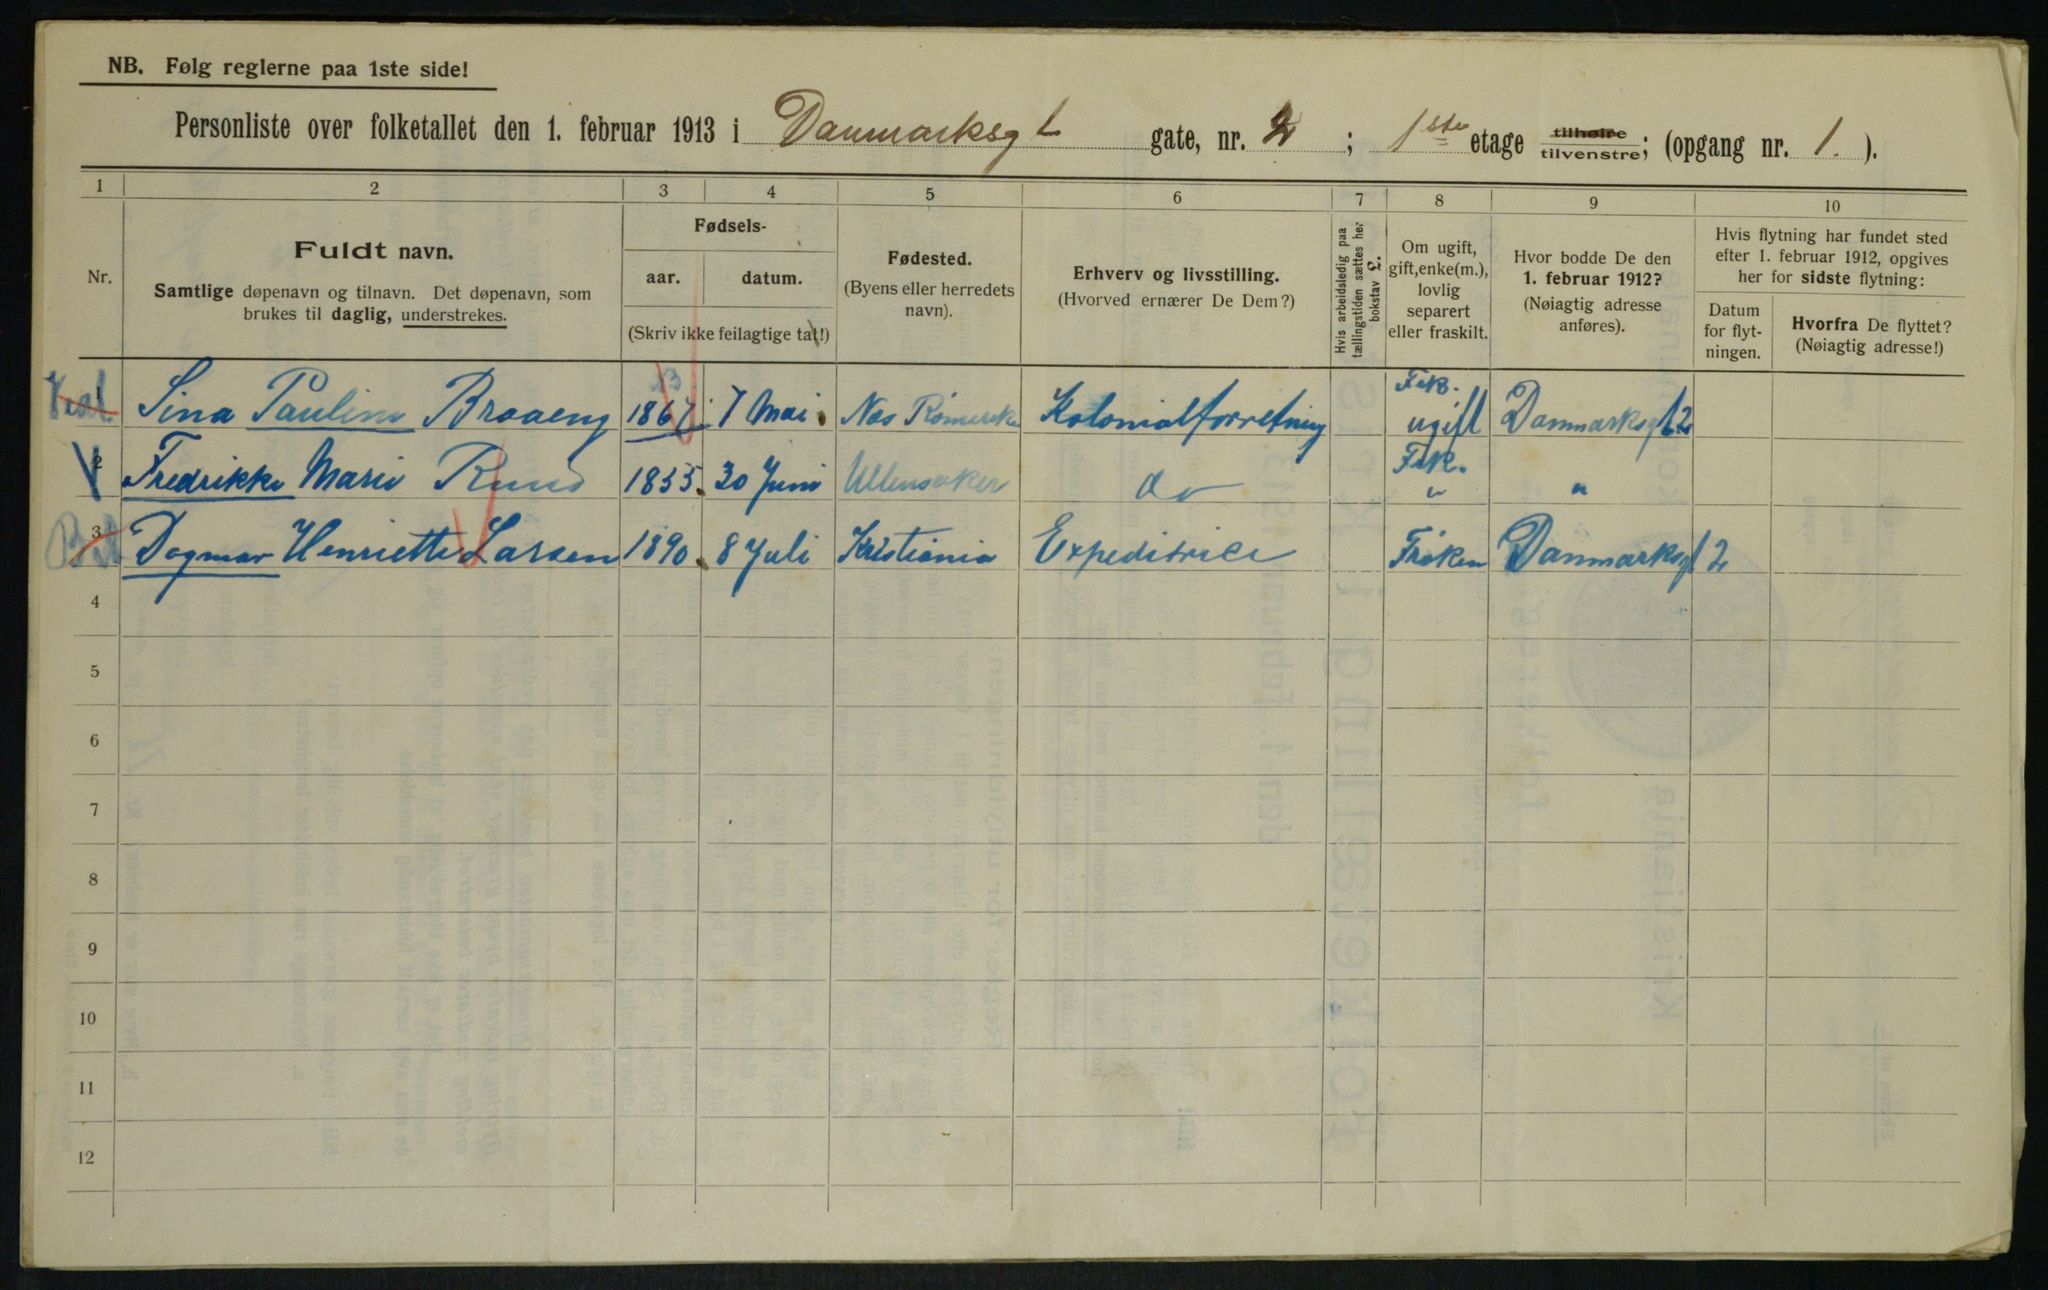 NB. Følg reglerne paa 1ste side!
Personliste over folketallet den 1. februar 1913 i Danmarksgt gate, nr. 2; 1ste etage tilhøire tilvenstre; (opgang nr. 1.).
1 2 3 4 5 6 7 8 9 10
Nr.
Fuldt navn.
Samtlige døpenavn og tilnavn. Det døpenavn, som
brukes til daglig, understrekes.
Fødsels-
aar. datum.
(Skriv ikke feilagtige tal!)
Fødested.
(Byens eller herredets
navn).
Erhverv og livsstilling.
(Hvorved ernærer De Dem?)
Hvis arbeidsledig paa
tællingstiden sættes her
bokstav L.
Om ugift,
gift, enke(m.),
lovlig
separert
eller fraskilt.
Hvor bodde De den
1. februar 1912?
(Nøiagtig adresse
anføres).
Hvis flytning har fundet sted
efter 1. februar 1912, opgives
her for sidste flytning:
Datum
for flyt-
ningen.
Hvorfra De flyttet?
(Nøiagtig adresse!)
1 Sina Pauline Braaeng 1867 7 Mai Nes Romerike Kolonialforretning Frk. ugift Danmarksgt 2
2 Fredrikke Marie Ruud 1855. 30 Juni Ullensaker do Frk. " "
3 Dagmar Henriette Larsen 1890. 8 Juli Kristiania Expeditrice Frøken Danmarksgt 2
4
5
6
7
8
9
10
11
12